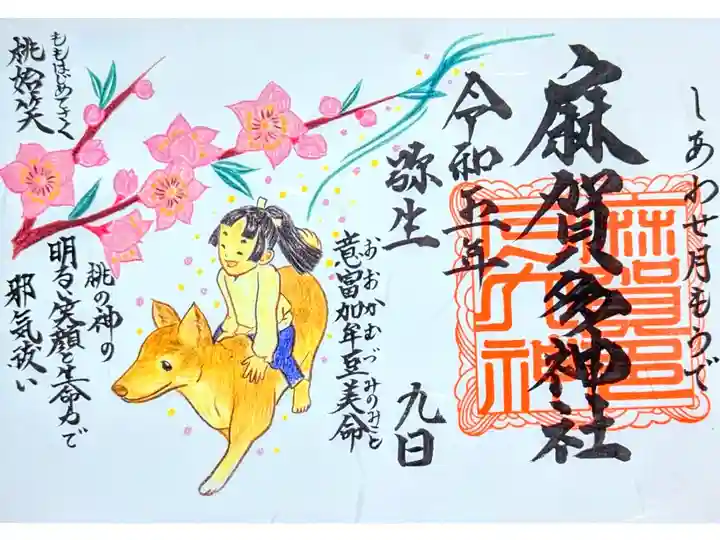 しあわせ月もうで
麻賀多神社
令和五年
弥生
九日
おおかむづみのみこと
意富加牟豆美命
ももはじめてさく
桃始笑
桃の神の
明るい笑顔と生命力で
邪気祓い